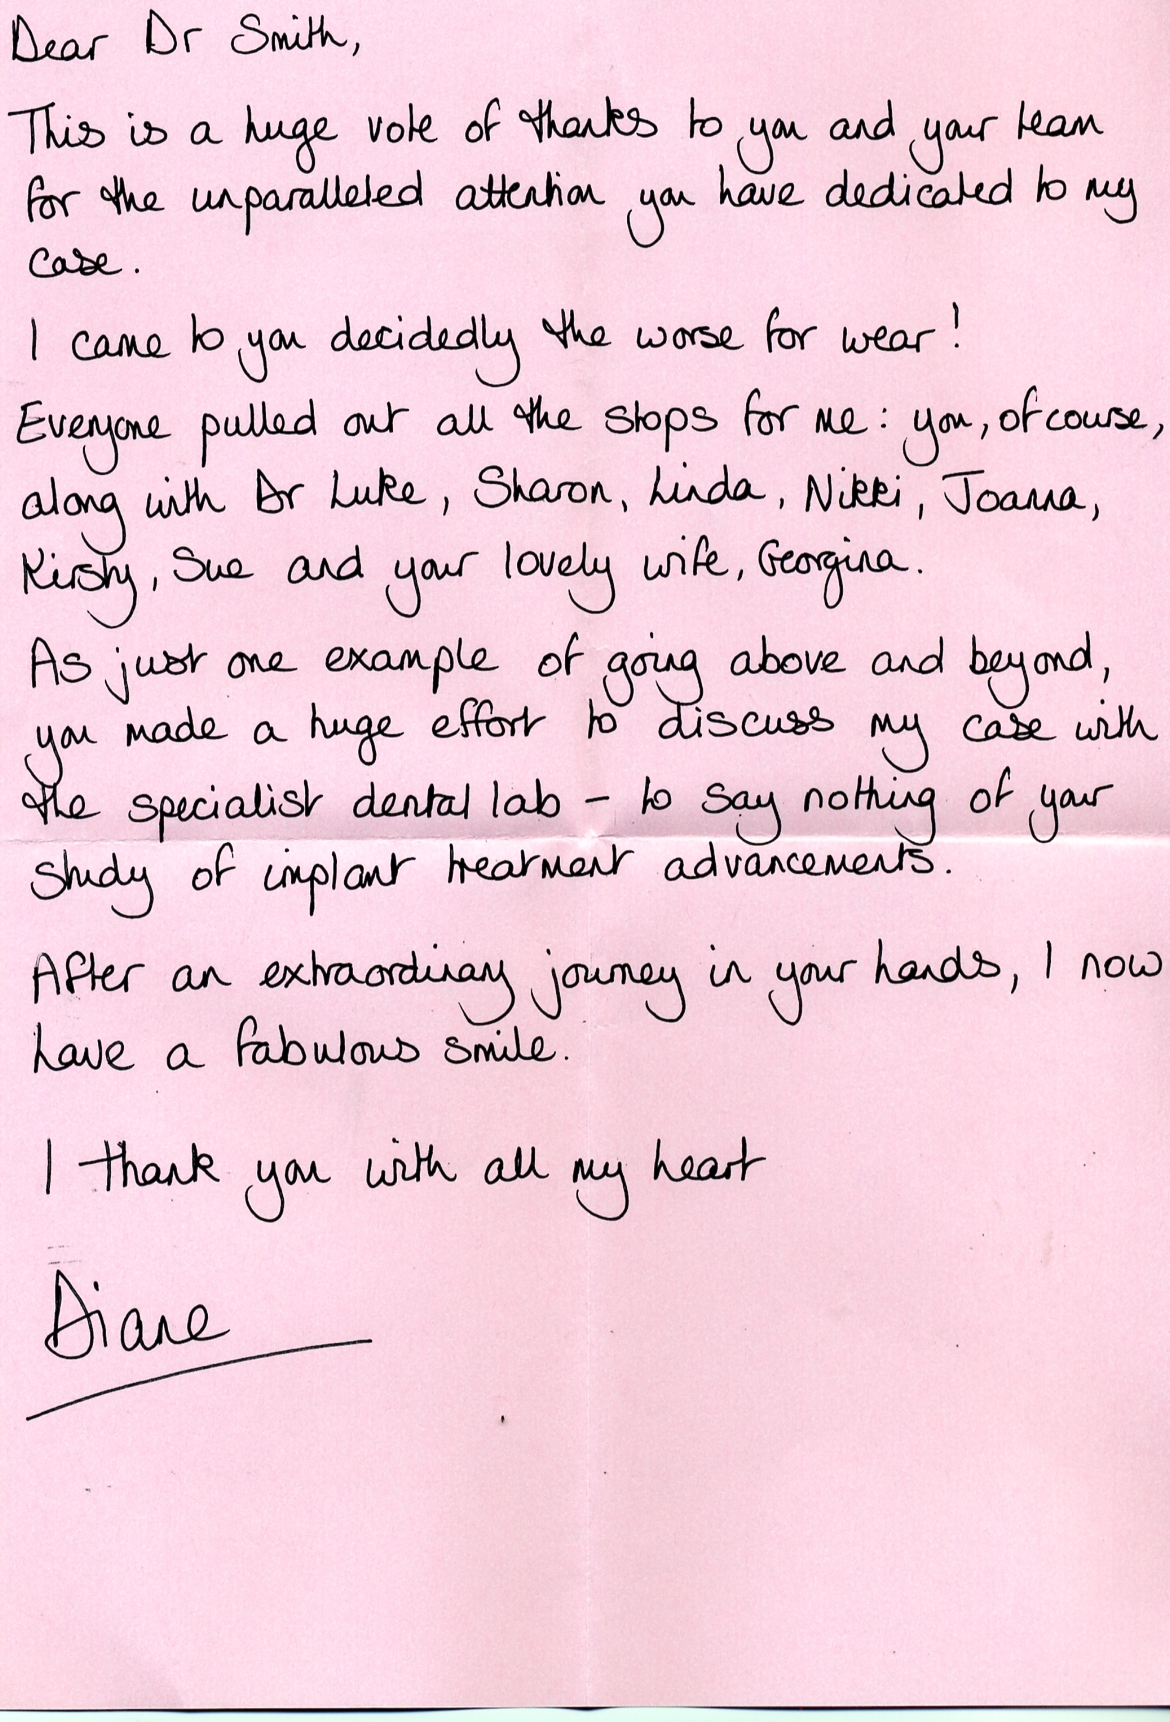 Dear Dr Smith,
This is a huge vote of thanks to you and your team
for the unparalleled attention you have dedicated to my
case.
I came to you decidedly the worse for wear!
Everyone pulled out all the stops for me: you, of course,
along with Dr Luke, Sharon, Linda, Nikki, Joanna,
Kirsty, Sue and your lovely wife, Georgina.
As just one example of going above and beyond,
you made a huge effort to discuss my case with
the specialist dental lab – to say nothing of your
study of implant treatment advancements.
After an extraordinary journey in your hands, I now
have a fabulous smile.
I thank you with all my heart
Diane